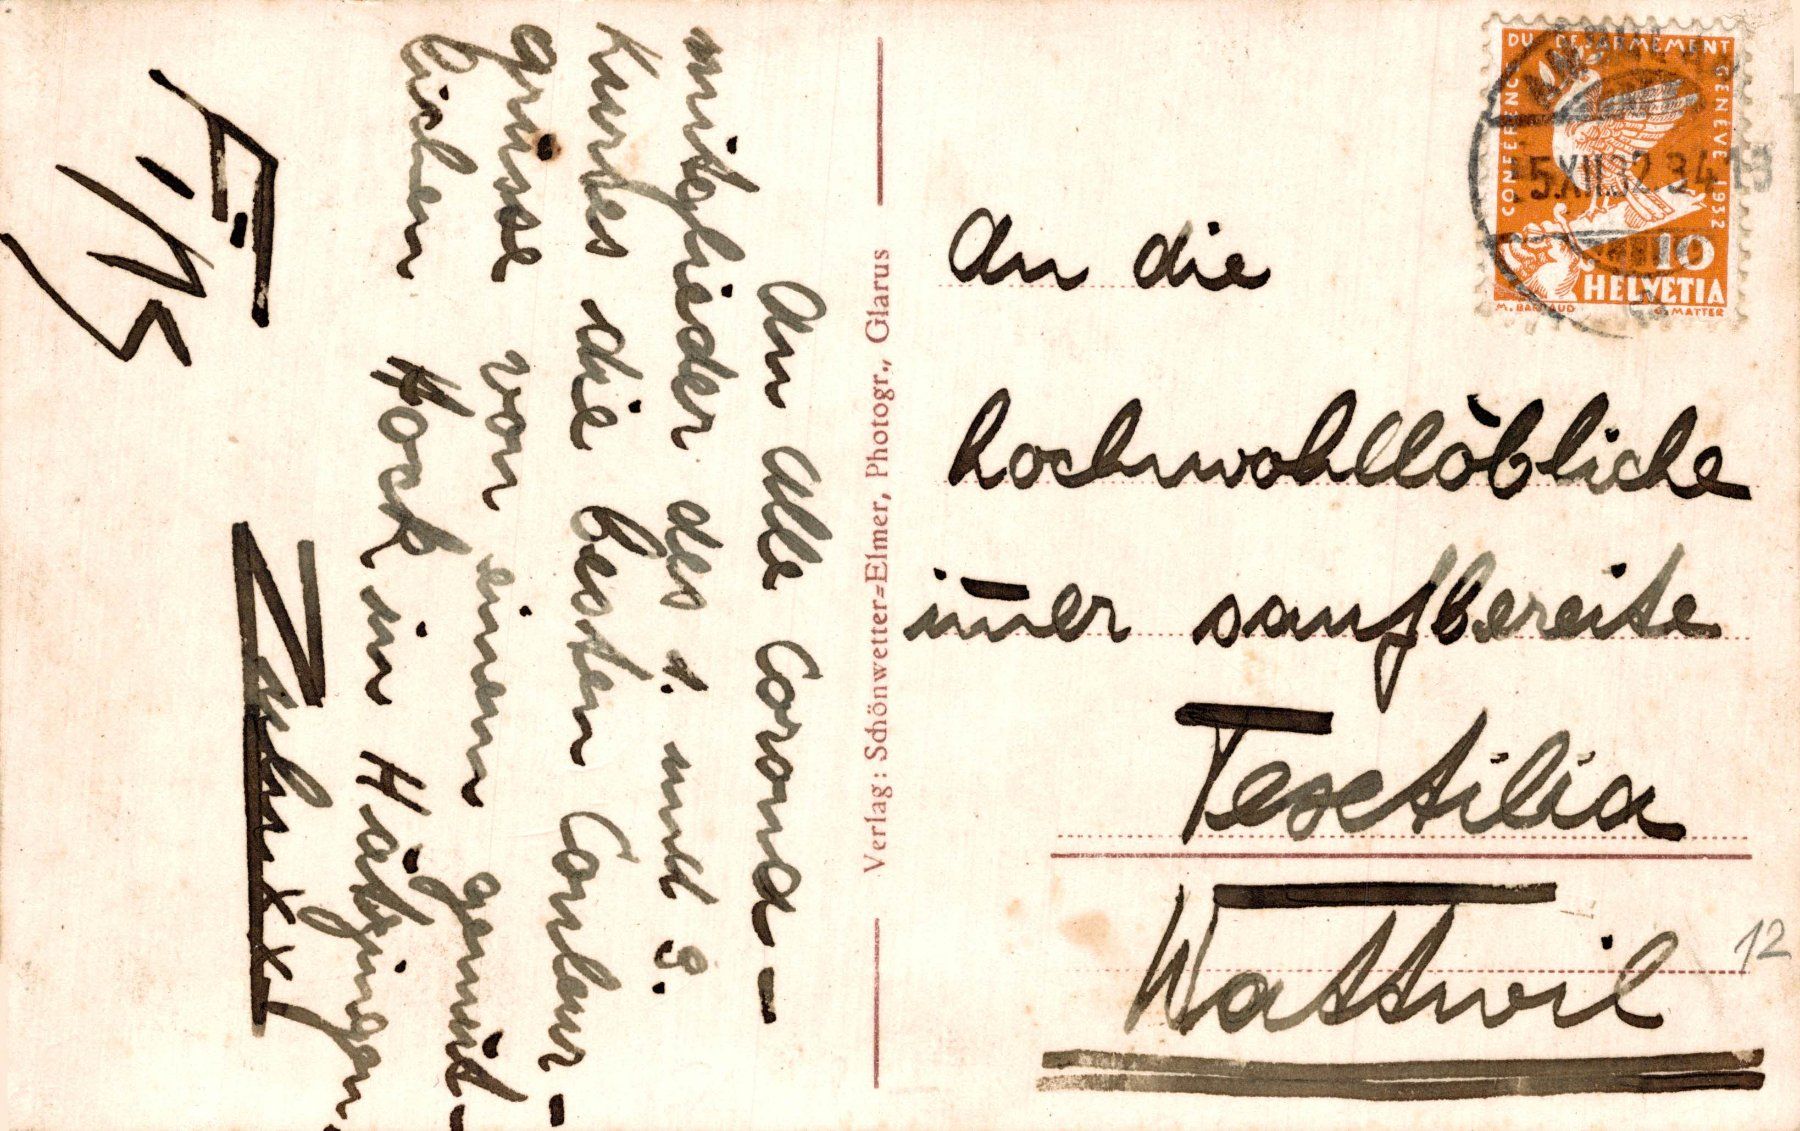 An alle Corona-
mitglieder des 1. und 3.
Kurses die besten Couleur-
grüsse von einem gemüt-
lichen Hock in Hätzingen
Zulu xxx
F. 15
Verlag: Schönwetter-Elmer, Photogr., Glarus
CONFERENCE DU DESARMEMENT GENEVE 1932
5.XII.32.
10
HELVETIA
An die
hochwohllöbliche
im̄er saufbereite
Textilia
Wattwil
12